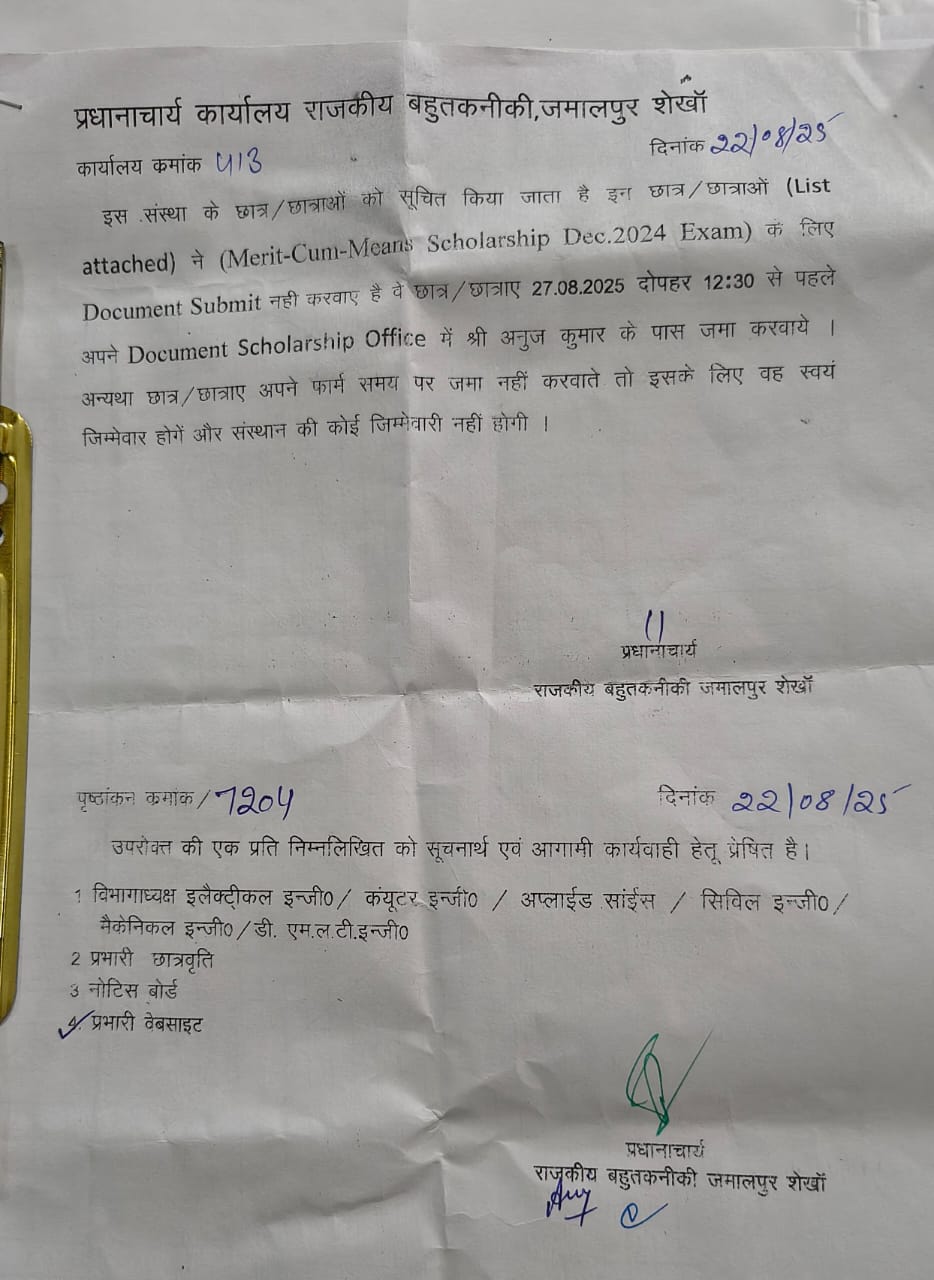 प्रधानाचार्य कार्यालय राजकीय बहुतकनीकी,जमालपुर शेखॉ
कार्यालय कमांक 413
दिनांक 22/08/25
इस संस्था के छात्र/छात्राओं को सूचित किया जाता है इन छात्र/छात्राओं (List
attached) ने (Merit-Cum-Means Scholarship Dec.2024 Exam) के लिए
Document Submit नही करवाए है वे छात्र/छात्राए 27.08.2025 दोपहर 12:30 से पहले
अपने Document Scholarship Office में श्री अनुज कुमार के पास जमा करवाये ।
अन्यथा छात्र/छात्राए अपने फार्म समय पर जमा नहीं करवाते तो इसके लिए वह स्वयं
जिम्मेवार होगें और संस्थान की कोई जिम्मेवारी नहीं होगी ।
प्रधानाचार्य
राजकीय बहुतकनीकी जमालपुर शेखॉ
पृष्ठांकन कमांक/7204
दिनांक 22/08/25
उपरोक्त की एक प्रति निम्नलिखित को सूचनार्थ एवं आगामी कार्यवाही हेतू प्रेषित है।
1 विभागाध्यक्ष इलैक्ट्रीकल इन्जी0/ कंयूटर इन्जी0 / अप्लाईड सांईस / सिविल इन्जी0/
मैकेनिकल इन्जी0/डी. एम.ल.टी.इन्जी0
2 प्रभारी छात्रवृति
3 नोटिस बोर्ड
4. प्रभारी वेबसाइट
प्रधानाचार्य
राजकीय बहुतकनीकी जमालपुर शेखॉ